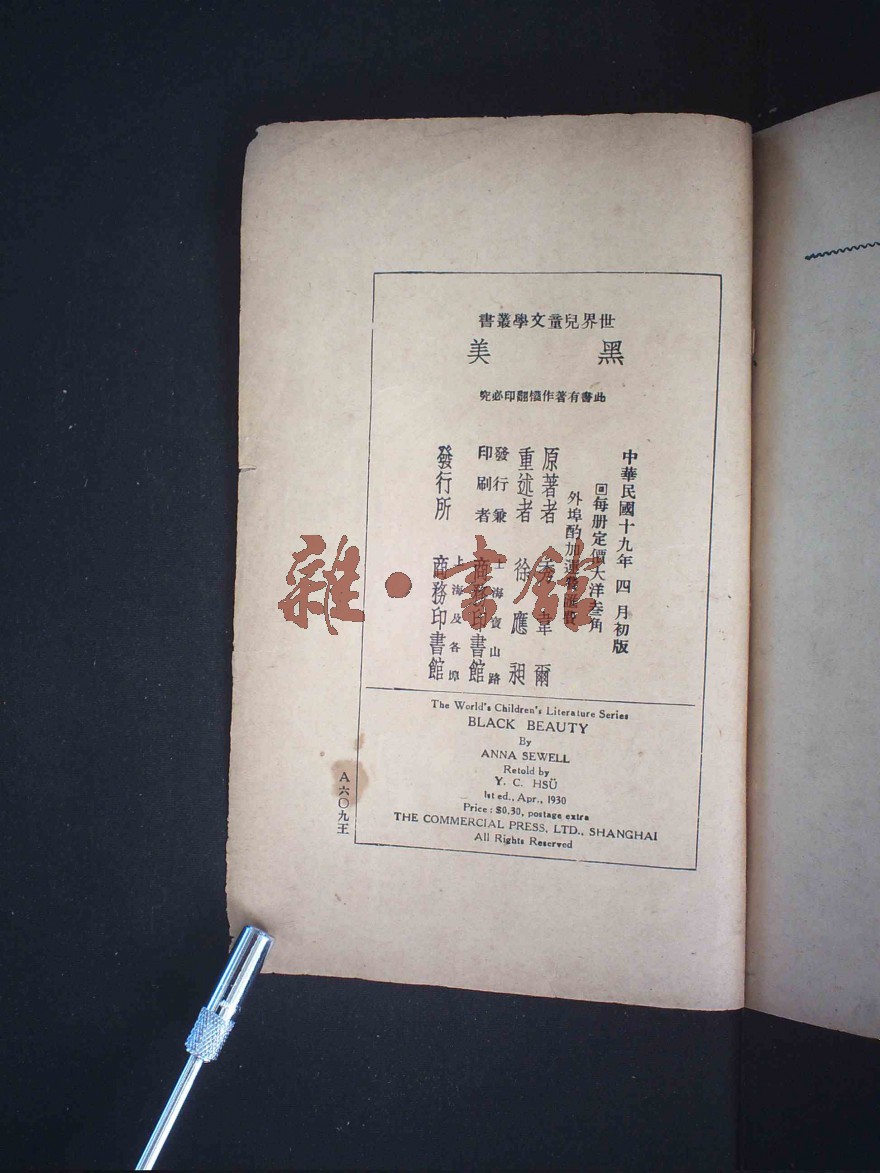 世界兒童文學叢書
黑美
此書有著作權翻印必究
中華民國十九年四月初版
每册定價大洋叁角
外埠酌加運費匯費
原著者 秀韋爾
重述者 徐應昶
發行兼印刷者 上海寶山路商務印書館
發行所 上海及各埠商務印書館
The World's Children's Literature Series
BLACK BEAUTY
By
ANNA SEWELL
Retold by
Y. C. HSÜ
1st ed., Apr., 1930
Price: $0.30, postage extra
THE COMMERCIAL PRESS, LTD., SHANGHAI
All Rights Reserved
A六〇九王
雜·書館